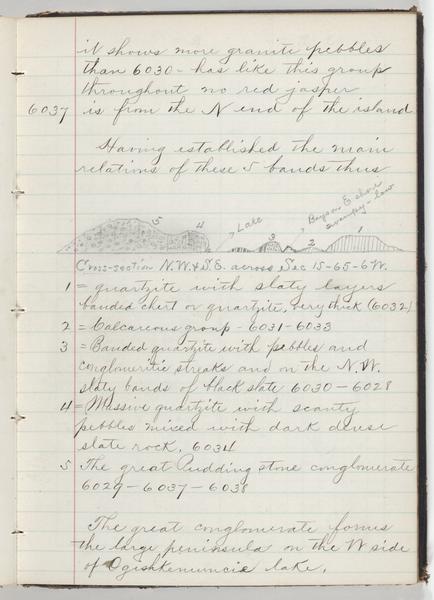 it shows more granite pebbles
than 6030 - has like this group
throughout no red jasper
6037 is from the N end of the island
Having established the main
relations of these 5 bands thus
5 4 Lake 3 2 1
Beyond E shore
swampy - low
Cross-section N.W. & S.E. across Sec 15-65-6W.
1 = quartzite with slaty layers
banded chert or quartzite, very thick (6032)
2 = Calcareous group - 6031-6033
3 = Banded quartzite with pebbles and
conglomeritic streaks and on the N.W.
slaty bands of black slate 6030-6028
4 = Massive quartzite with scanty
pebbles mixed with dark dense
slate rock. 6034
5 The great Pudding stone conglomerate
6029-6037-6038
The great conglomerate forms
the large peninsula on the W side
of Ogishkemuncie lake.